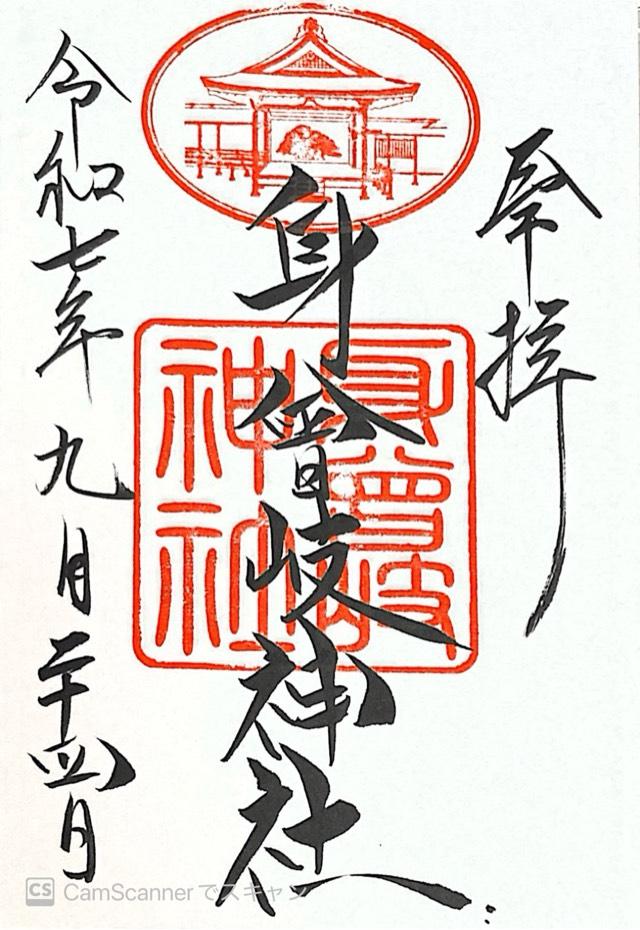 奉拝
身曾岐神社
身曾岐
神社
令和七年九月二十四日
CS CamScannerでスキャン